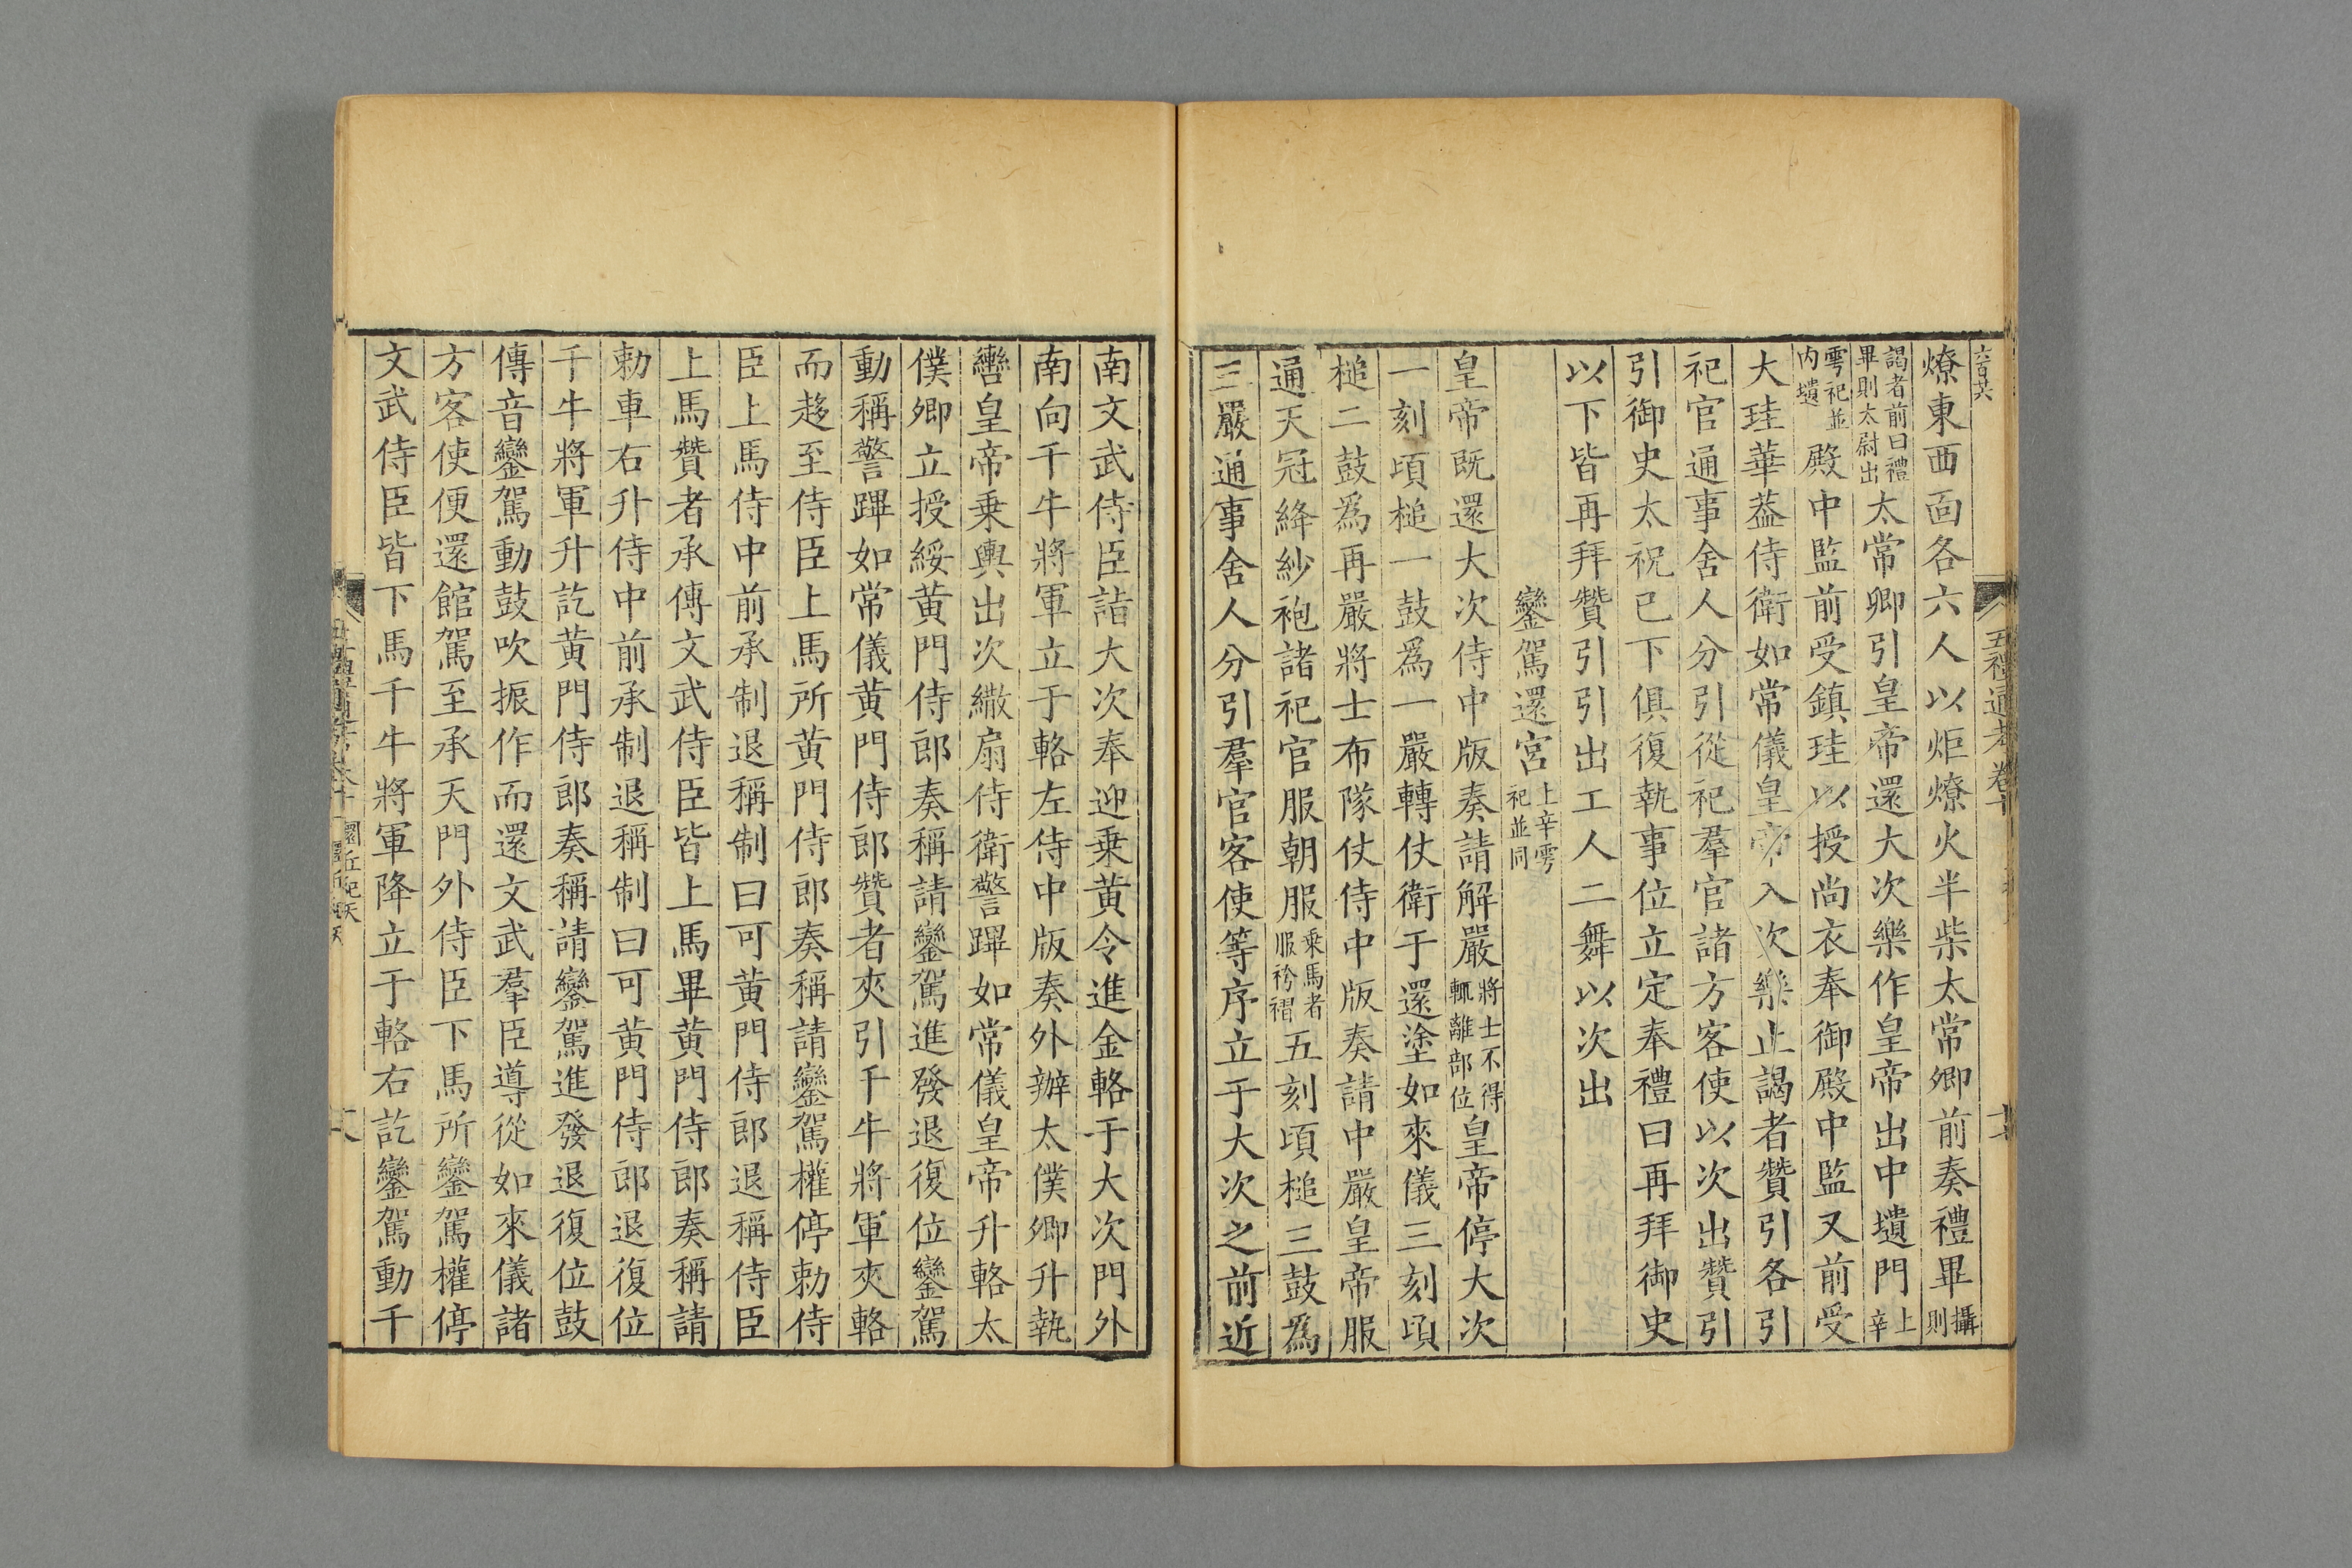 燎東西面各六人以炬燎火半柴太常卿前奏禮畢攝則
謁者前曰禮畢則太尉出太常卿引皇帝還大次樂作皇帝出中壝門上辛
雩祀並内壝殿中監前受鎮珪以授尚衣奉御殿中監又前受
大珪華葢侍衛如常儀皇帝入次樂止謁者贊引各引
祀官通事舍人分引從祀羣官諸方客使以次出贊引
引御史太祝已下俱復執事位立定奉禮曰再拜御史
以下皆再拜贊引引出工人二舞以次出
鑾駕還宮上辛雩祀並同
皇帝既還大次侍中版奏請解嚴將士不得輒離部位皇帝停大次
一刻頃槌一鼓爲一嚴轉仗衛于還塗如來儀三刻頃
槌二鼓爲再嚴將士布隊仗侍中版奏請中嚴皇帝服
通天冠絳紗袍諸祀官服朝服乘馬者服袴褶五刻頃槌三鼓爲
三嚴通事舍人分引羣官客使等序立于大次之前近
南文武侍臣詣大次奉迎乗黄令進金輅于大次門外
南向千牛將軍立于輅左侍中版奏外辦太僕卿升執
轡皇帝乗輿出次繖扇侍衛警蹕如常儀皇帝升輅太
僕卿立授綏黄門侍郎奏稱請鑾駕進發退復位鑾駕
動稱警蹕如常儀黄門侍郎贊者夾引千牛將軍夾輅
而趍至侍臣上馬所黄門侍郎奏稱請鑾駕權停勅侍
臣上馬侍中前承制退稱制曰可黄門侍郎退稱侍臣
上馬贊者承傳文武侍臣皆上馬畢黄門侍郎奏稱請
勅車右升侍中前承制退稱制曰可黄門侍郎退復位
千牛將軍升訖黄門侍郎奏稱請鑾駕進發退復位鼓
傳音鑾駕動鼓吹振作而還文武羣臣導從如來儀諸
方客使便還館駕至承天門外侍臣下馬所鑾駕權停
文武侍臣皆下馬千牛將軍降立于輅右訖鑾駕動千